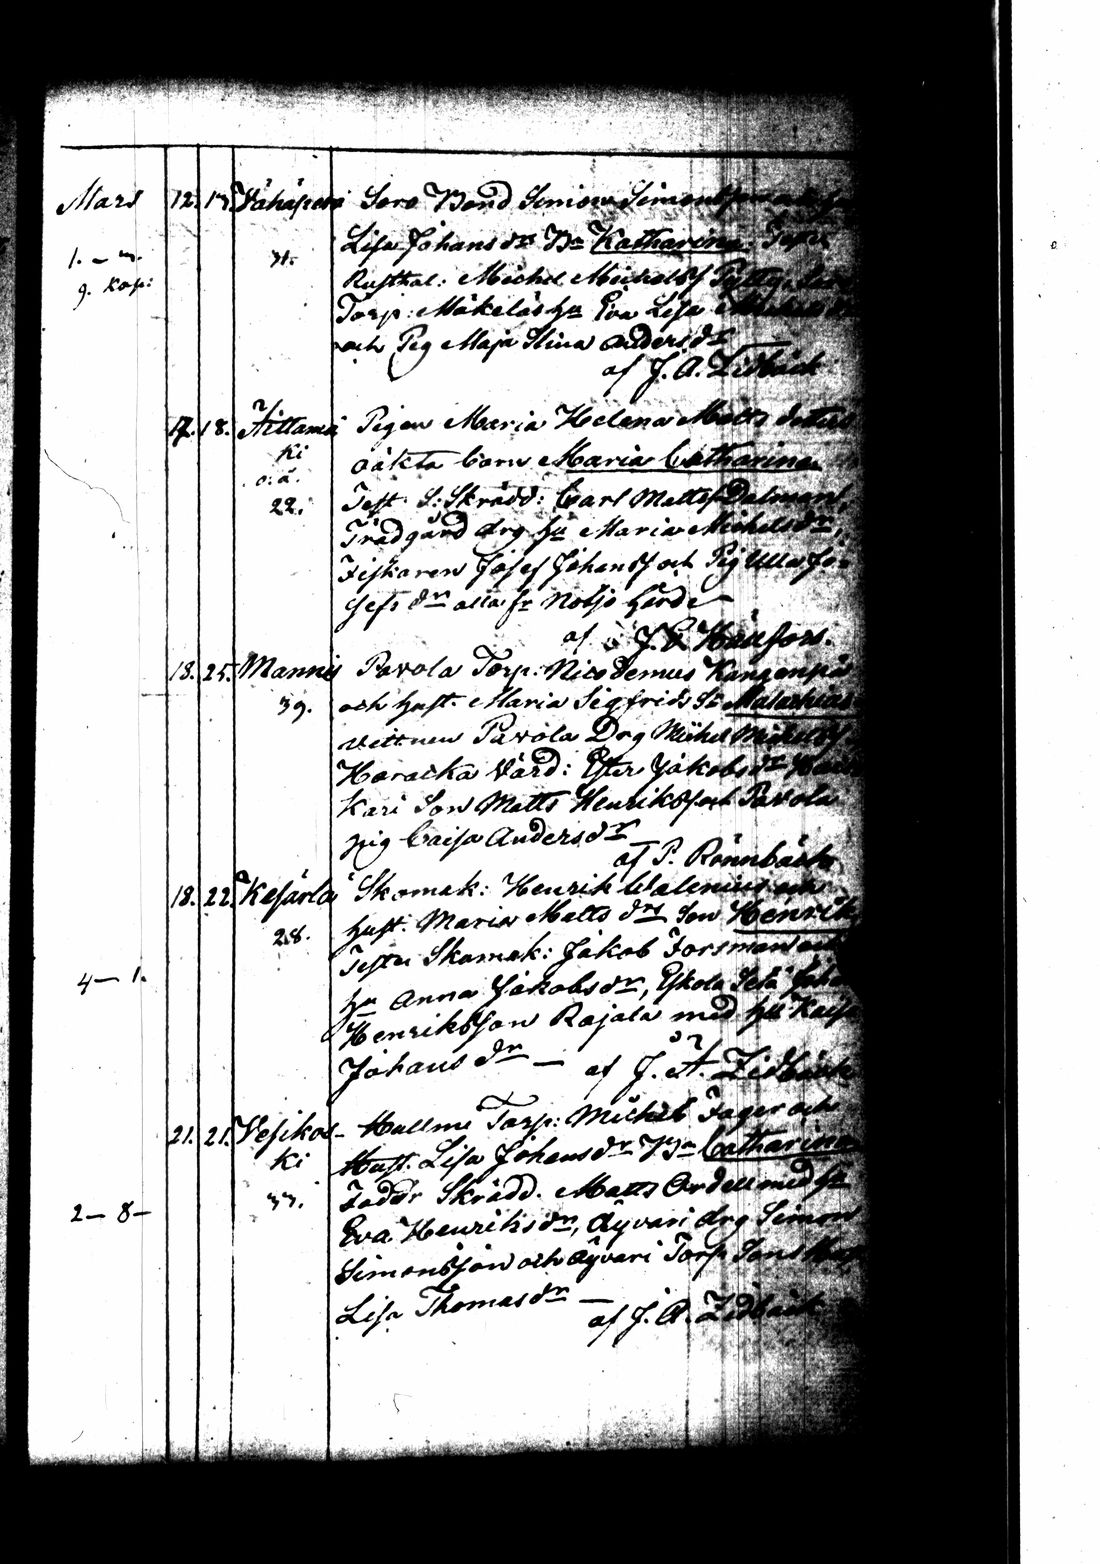 Mars 12. 13. Vähäperi Sora Bond Simon Simonsson och hu
Lisa Johans dr Bn Katharina. Test:
1. – 3. 31. Rusthål: Michel Michelss Pytty,
9. Kop: Torp: Mäkeläs hu Eva Lisa Michels dr
och Pig Maja Stina Anders dr
af J. A. Lidbäck
17. 18. Tittamä Pigan Maria Helena Matts dotters
ki oäkta barn Maria Catharina
o. ä.
22. Test S: Skrädd: Carl Mattss Dalman,
Trädgård drg hu Maria Michels dr,
Fiskaren Josef Johanss och Pig Ulla Jo-
sefs dr alla fr Nobjo Gårde
af J. E. Häufors.
18. 25. Mannis Pavola Torp: Nicodemus Kangenpä
39. och hust. Maria Sigfrids S: Malachias
vittnen Pavola Drg Michel Michelss
Haracka Värd: Ester Jakobs dr
kari Son Matts Henrikss och Pavola
pig Caisa Anders dr
af P. Rönnbäck
18. 22. Kesärla Skomak: Henrik Walenius och
28. hust. Maria Matts drs Son Henrik
Testes Skomak: Jakob Forsman och
4 – 1. hu Anna Jakobs dr, Eskola
Henriksson Rajala med hu Kaisa
Johans dr — af J. A. Lidbäck
21. 21. Vesikos- Hallmi Torp: Michel Fager och
ki Hust. Lisa Johans dr Bn Catharina
33. Faddr Skrädd. Matts Ordell med hu
2 – 8 – Eva Henriks dr, Äyvari drg Simon
Simonsson och Äyvari Torp Sons
Lisa Thomas dr —
af J. A. Lidbäck